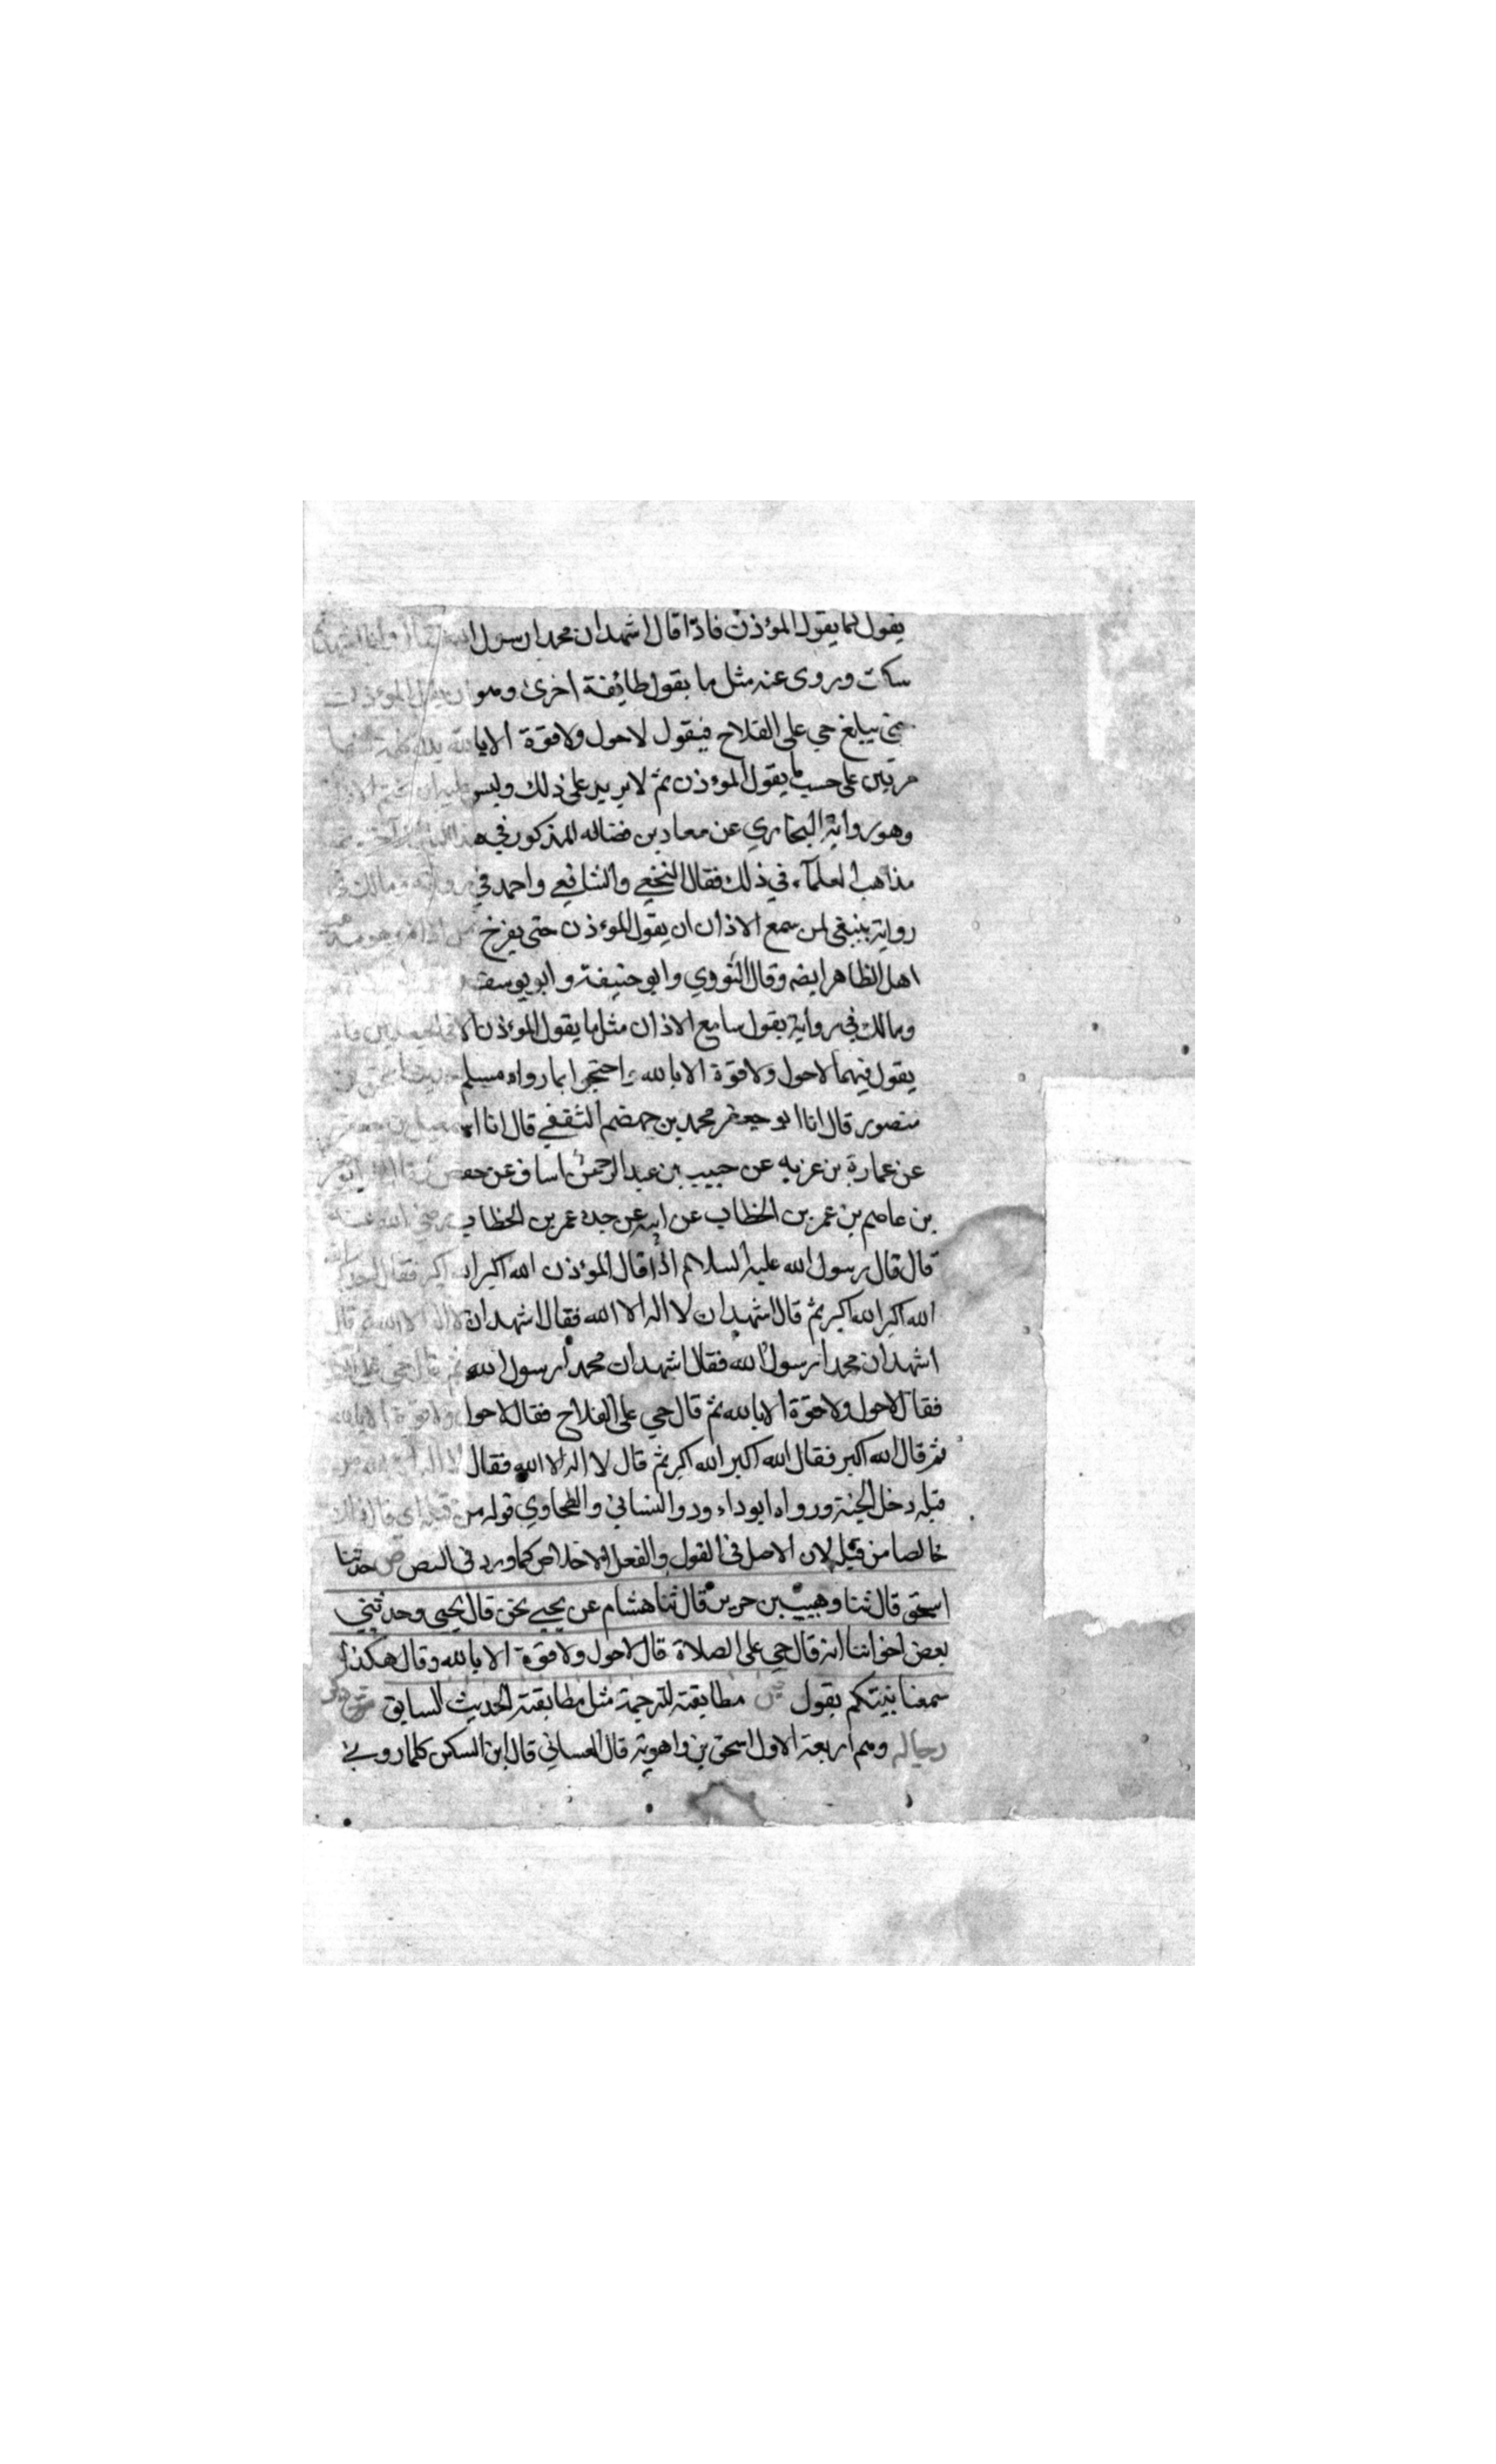 يقول كما يقول المؤذن فاذا قال اشهد ان محمدا رسول الله فقال وانا اشهد
سكت وروى عنه مثل ما يقول طائفة اخرى وهو ان يقول المؤذن
حتى يبلغ حي على الفلاح فيقول لا حول ولا قوة الا بالله بدل كلمة منهما
مرتين على حسب ما يقول المؤذن ثم لا يزيد على ذلك وليس عليه ان يختم الاذان
وهو رواية البخاري عن معاد بن فضاله المذكور في هذا الباب
مذاهب العلمآء في ذلك فقال النخعي والشافعي واحمد في رواية ومالك في
رواية ينبغي لمن سمع الاذان ان يقول المؤذن حتى يفرغ من اذانه وهو مذهب
اهل الظاهر ايضه وقال الثووي وابو حنيفة وابو يوسف
ومالك في رواية يقول سامع الاذان مثل ما يقول المؤذن الا في الحيعلتين فانه
يقول فيهما لا حول ولا قوة الا بالله واحتجوا بما رواه مسلم حدثنا اسحق بن
منصور قال انا ابو جعفر محمد بن جهضم الثقفي قال انا اسمعيل بن جعفر
عن عمارة بن عزيه عن حبيب بن عبد الرحمن اساف عن حفص
بن عاصم بن عمر بن الخطاب عن ابيه عن جده عمر بن الخطاب رضي الله عنه
قال قال رسول الله عليه السلام اذا قال المؤذن الله اكبر الله اكبر فقال احدكم
الله اكبر الله اكبر ثم قال اشهد ان لا اله الا الله فقال اشهد ان لا اله الا الله ثم قال
اشهد ان محمدا رسول الله فقال اشهد ان محمدا رسول الله ثم قال حي على
فقال لا حول ولا قوة الا بالله ثم قال حي على الفلاح فقال لا حول ولا قوة الا بالله
ثم قال الله اكبر فقال الله اكبر الله اكبر ثم قال لا اله الا الله فقال لا اله الا الله من
قبله دخل الجنة ورواه ابو داود والنسائي والطحاوي قوله من قبله اي قال ذلك
خالصا من قبله لان الاصل في القول والفعل الاخلاص كما ورد في النص ص حدثنا
اسحق قال ثنا وهيب بن جرير قال ثنا هشام عن يحيى نحن قال يحيى وحدثني
بعض اخواننا انه قال حي على الصلاة قال لا حول ولا قوة الا بالله وقال هكذا
سمعنا نبيكم يقول ش مطابقته للترجمة مثل مطابقة الحديث السابق ذكر
رجاله وهم اربعة الاول اسحق بن راهوية قال الغساني قال ابن السكن كلما روى